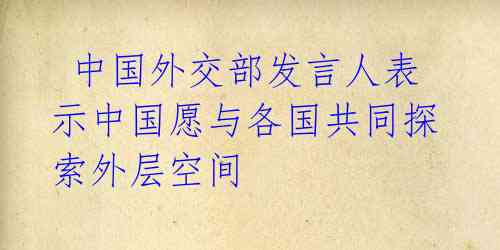 中国外交部发言人表
示中国愿与各国共同探
索外层空间